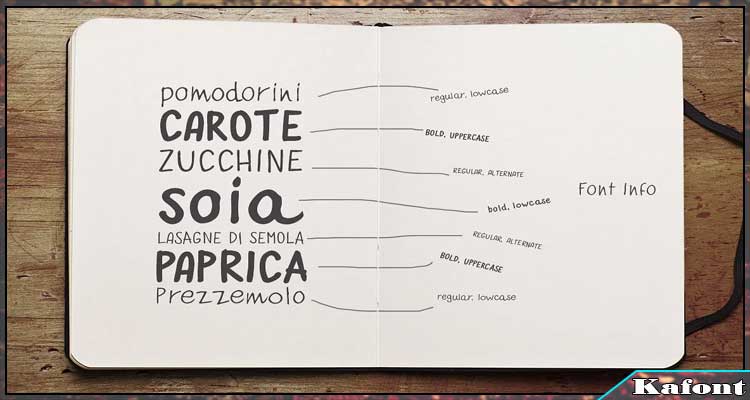 pomodorini
CAROTE
ZUCCHINE
soia
LASAGNE DI SEMOLA
PAPRICA
Prezzemolo
regular, lowcase
BOLD, UPPERCASE
REGULAR, ALTERNATE
bold, lowcase
REGULAR, ALTERNATE
BOLD, UPPERCASE
regular, lowcase
Font Info
Kafont